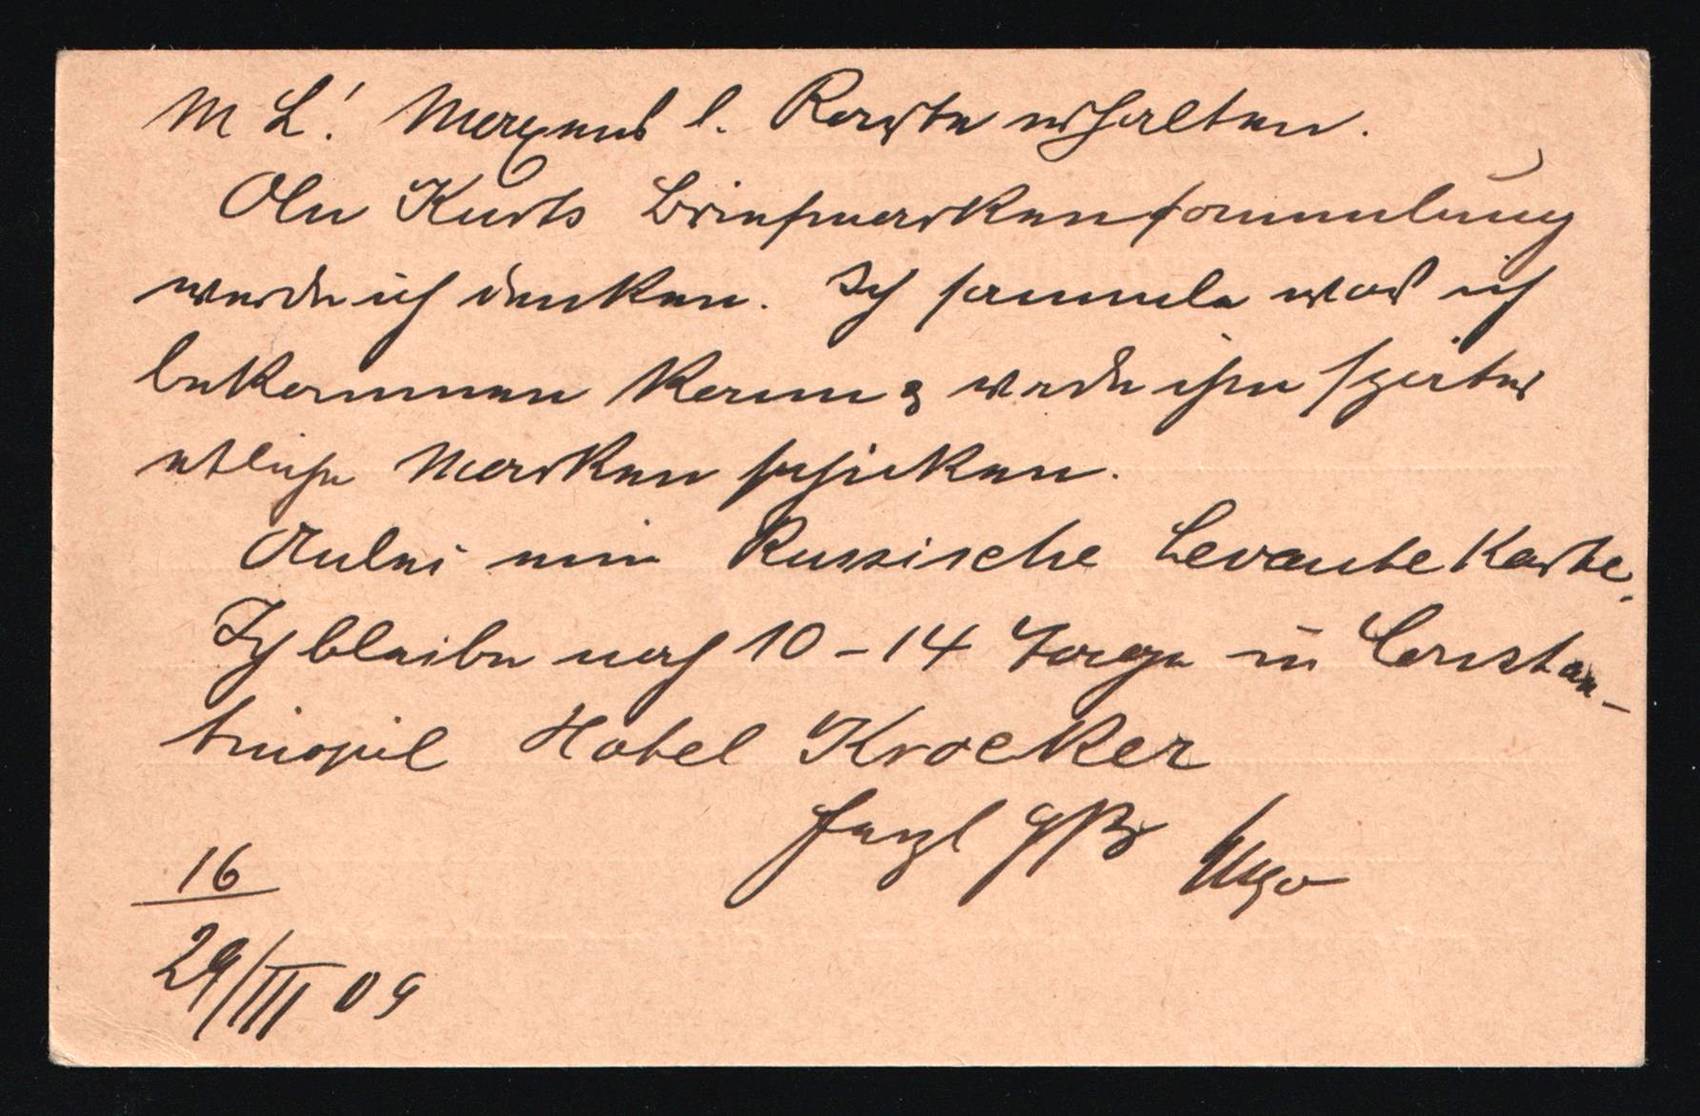 M L! Morgens l. Karte erhalten.
An Kurts Briefmarkensammlung
werde ich denken. Ich sammele was ich
bekommen kann & werde ihm später
etliche Marken schicken.
Anbei eine Russische Levante Karte.
Ich bleibe noch 10-14 Tage in Constan-
tinopel Hotel Kroecker
Herzl Gß Hugo
16
29/III 09